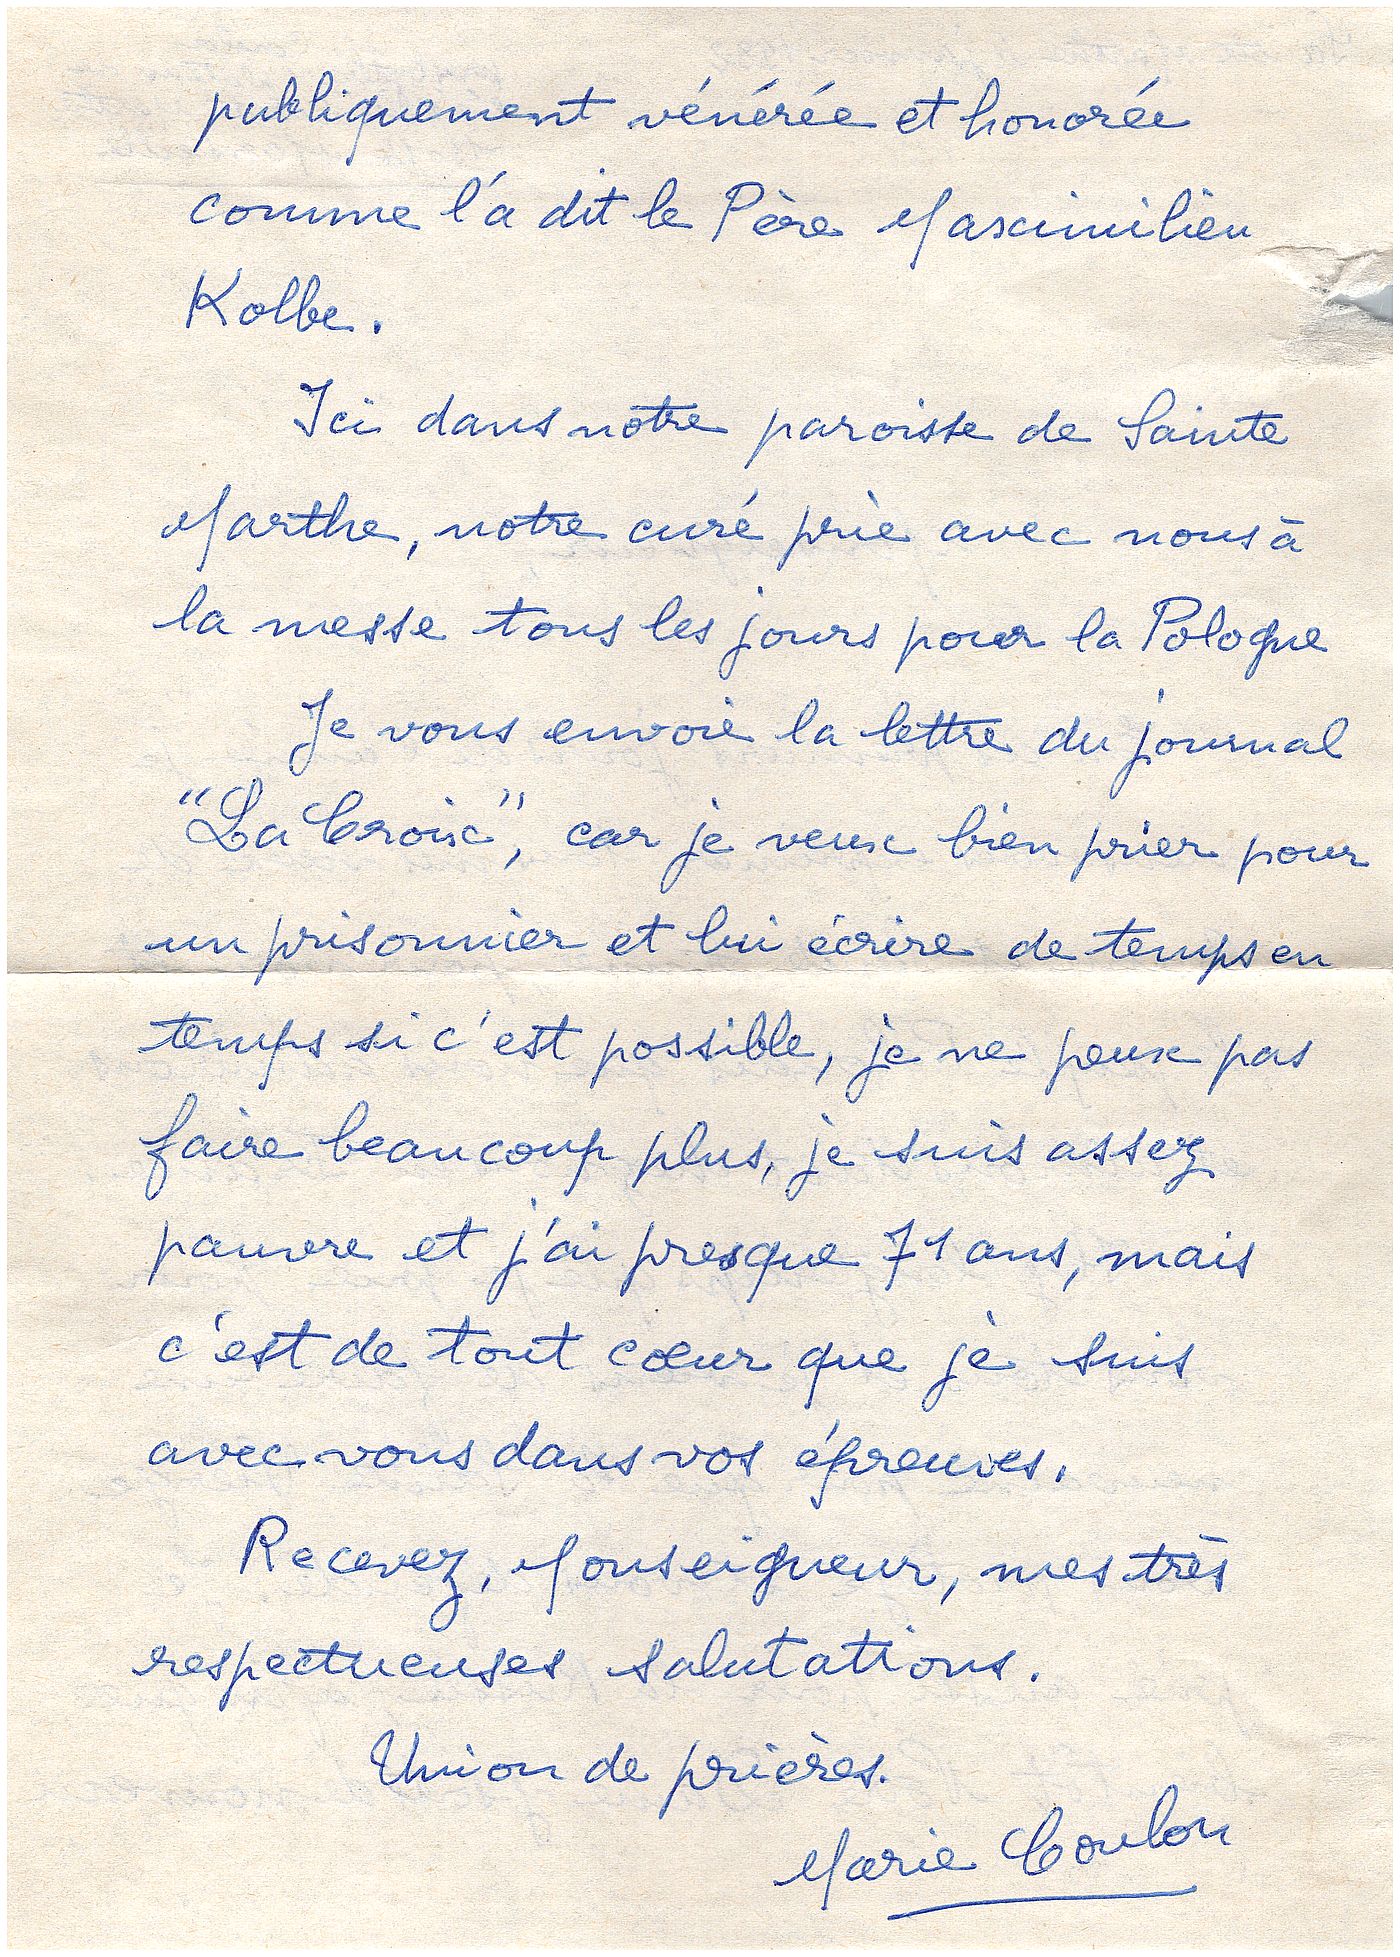 publiquement vénérée et honorée
comme l'a dit le Père Maximilien
Kolbe.
Ici dans notre paroisse de Sainte
Marthe, notre curé prie avec nous à
la messe tous les jours pour la Pologne
Je vous envoie la lettre du journal
"La Croix", car je veux bien prier pour
un prisonnier et lui écrire de temps en
temps si c'est possible, je ne peux pas
faire beaucoup plus, je suis assez
pauvre et j'ai presque 71 ans, mais
c'est de tout cœur que je suis
avec vous dans vos épreuves.
Recevez, Monseigneur, mes très
respectueuses salutations.
Union de prières.
Marie Coulon